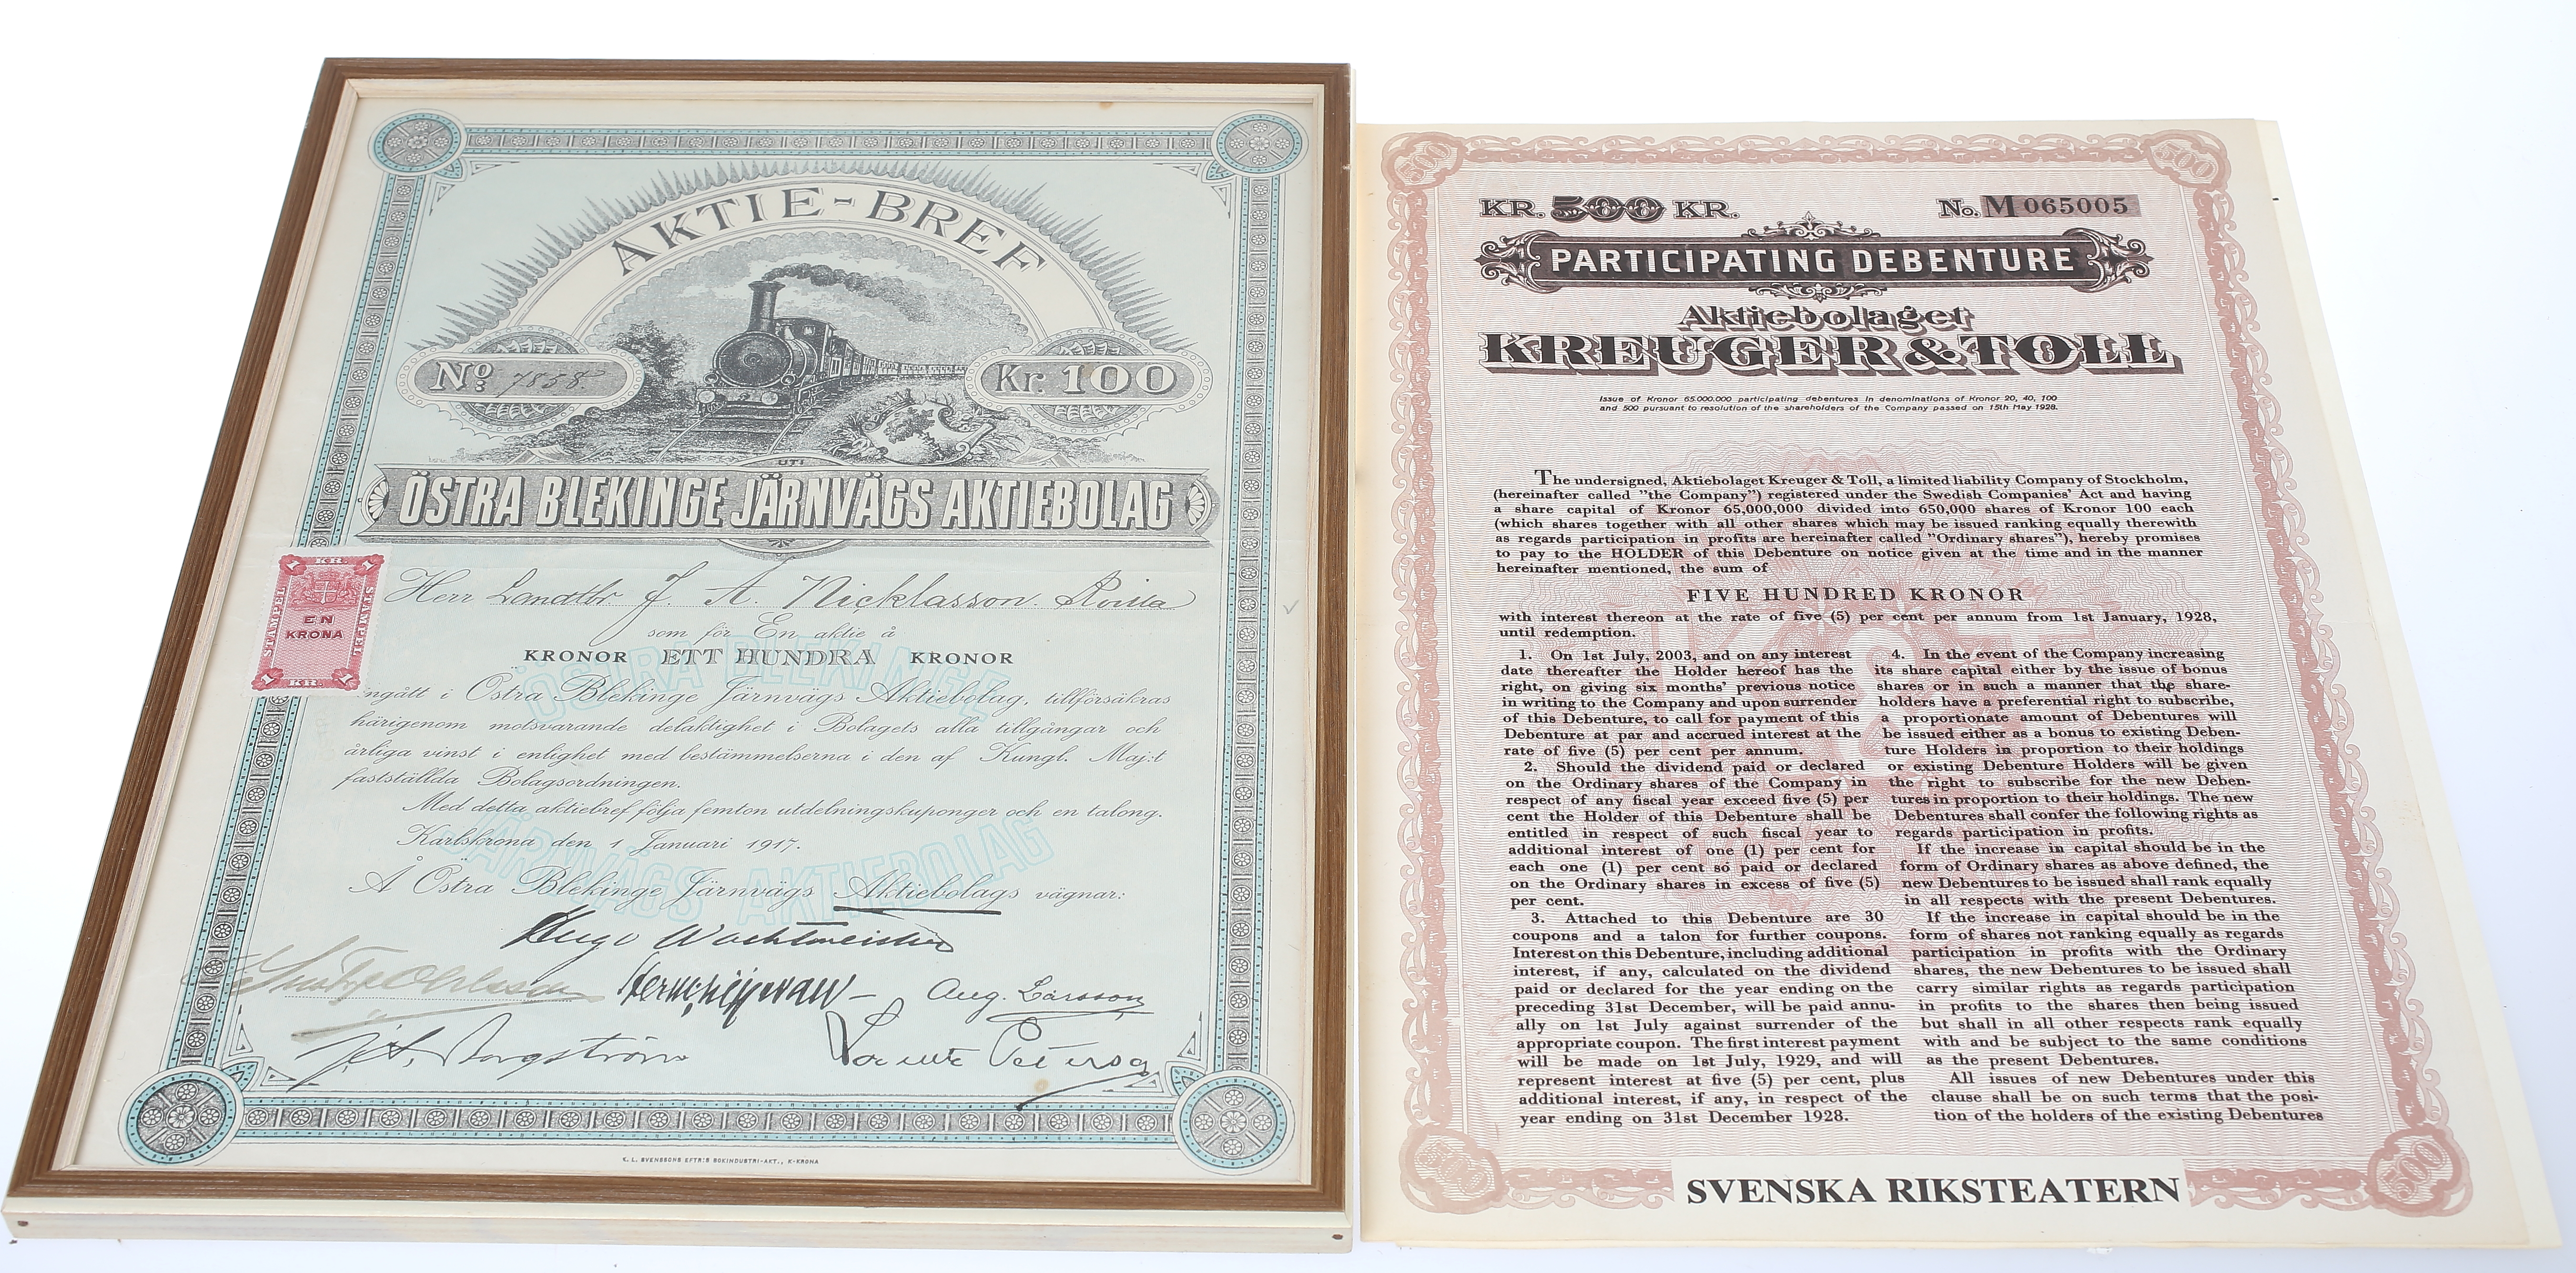 AKTIE-BREF
No: 7858
Kr. 100
UTI
ÖSTRA BLEKINGE JÄRNVÄGS AKTIEBOLAG
1 KR. 1
STÄMPEL
EN
KRONA
STÄMPEL
1 KR. 1
Herr Landtbr. J. A. Nicklasson.
som för En aktie å
KRONOR ETT HUNDRA KRONOR
ingått i Östra Blekinge Järnvägs Aktiebolag, tillförsäkras
härigenom motsvarande delaktighet i Bolagets alla tillgångar och
årliga vinst i enlighet med bestämmelserna i den af Kungl. Maj:t
fastställda Bolagsordningen.
Med detta aktiebref följa femton utdelningskuponger och en talong.
Karlskrona den 1 Januari 1917.
Å Östra Blekinge Järnvägs Aktiebolags vägnar:
ÖSTRA BLEKINGE
JÄRNVÄGS AKTIEBOLAG
Hugo Wachtmeister
Aug. Larsson
Borgström
K. L. SVENSSONS EFTR:S BOKINDUSTRI-AKT., K-KRONA
500
500
KR. 500 KR.
No. M 065005
PARTICIPATING DEBENTURE
Aktiebolaget
KREUGER & TOLL
Issue of Kronor 65.000.000 participating debentures in denominations of Kronor 20, 40, 100
and 500 pursuant to resolution of the shareholders of the Company passed on 15th May 1928.
The undersigned, Aktiebolaget Kreuger & Toll, a limited liability Company of Stockholm,
(hereinafter called "the Company") registered under the Swedish Companies' Act and having
a share capital of Kronor 65,000,000 divided into 650,000 shares of Kronor 100 each
(which shares together with all other shares which may be issued ranking equally therewith
as regards participation in profits are hereinafter called "Ordinary shares"), hereby promises
to pay to the HOLDER of this Debenture on notice given at the time and in the manner
hereinafter mentioned, the sum of
FIVE HUNDRED KRONOR
with interest thereon at the rate of five (5) per cent per annum from 1st January, 1928,
until redemption.
1. On 1st July, 2003, and on any interest
date thereafter the Holder hereof has the
right, on giving six months' previous notice
in writing to the Company and upon surrender
of this Debenture, to call for payment of this
Debenture at par and accrued interest at the
rate of five (5) per cent per annum.
2. Should the dividend paid or declared
on the Ordinary shares of the Company in
respect of any fiscal year exceed five (5) per
cent the Holder of this Debenture shall be
entitled in respect of such fiscal year to
additional interest of one (1) per cent for
each one (1) per cent so paid or declared
on the Ordinary shares in excess of five (5)
per cent.
3. Attached to this Debenture are 30
coupons and a talon for further coupons.
Interest on this Debenture, including additional
interest, if any, calculated on the dividend
paid or declared for the year ending on the
preceding 31st December, will be paid annu-
ally on 1st July against surrender of the
appropriate coupon. The first interest payment
will be made on 1st July, 1929, and will
represent interest at five (5) per cent, plus
additional interest, if any, in respect of the
year ending on 31st December 1928.
4. In the event of the Company increasing
its share capital either by the issue of bonus
shares or in such a manner that the share-
holders have a preferential right to subscribe,
a proportionate amount of Debentures will
be issued either as a bonus to existing Deben-
ture Holders in proportion to their holdings
or existing Debenture Holders will be given
the right to subscribe for the new Deben-
tures in proportion to their holdings. The new
Debentures shall confer the following rights as
regards participation in profits.
If the increase in capital should be in the
form of Ordinary shares as above defined, the
new Debentures to be issued shall rank equally
in all respects with the present Debentures.
If the increase in capital should be in the
form of shares not ranking equally as regards
participation in profits with the Ordinary
shares, the new Debentures to be issued shall
carry similar rights as regards participation
in profits to the shares then being issued
but shall in all other respects rank equally
with and be subject to the same conditions
as the present Debentures.
All issues of new Debentures under this
clause shall be on such terms that the posi-
tion of the holders of the existing Debentures
500
500
SVENSKA RIKSTEATERN